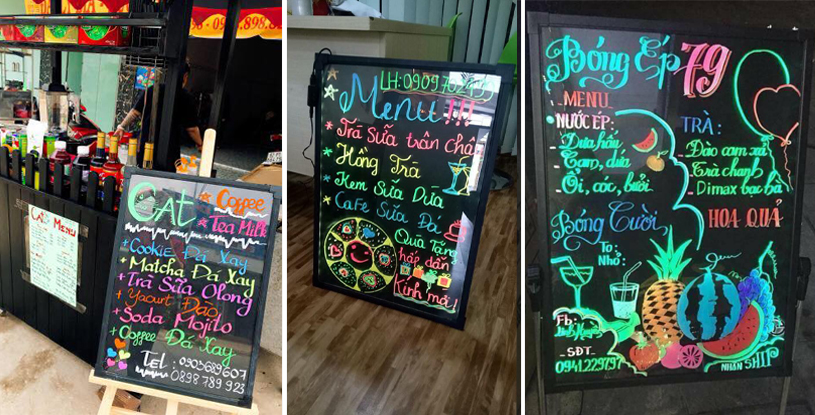 0 - 098.898.8
CAT MENU
CAT
Coffee
Tea Milk
+ Cookie Đá Xay
+ Matcha Đá Xay
+ Trà Sữa Olong
+ Yaourt Đào
+ Soda Mojito
+ Coffee Đá Xay
TEL: 0905689607
0898 789 923
LH:0909702
Menu!!!
* Trà Sữa trân Châu
* Hồng Trà
* Kem Sữa Dừa
* Cafe Sữa Đá
Quà Tặng
hấp dẫn
Kính mời!
Bóng Ép 79
MENU
NƯỚC ÉP:
Dưa hấu
Cam, dứa
Ổi, cóc, bưởi
TRÀ:
Đào cam xả
Trà chanh
Dimax bạc hà
Bóng Cười
To:
Nhỏ:
HOA QUẢ
Fb:
SĐT
0941.229797
NHẬN SHIP